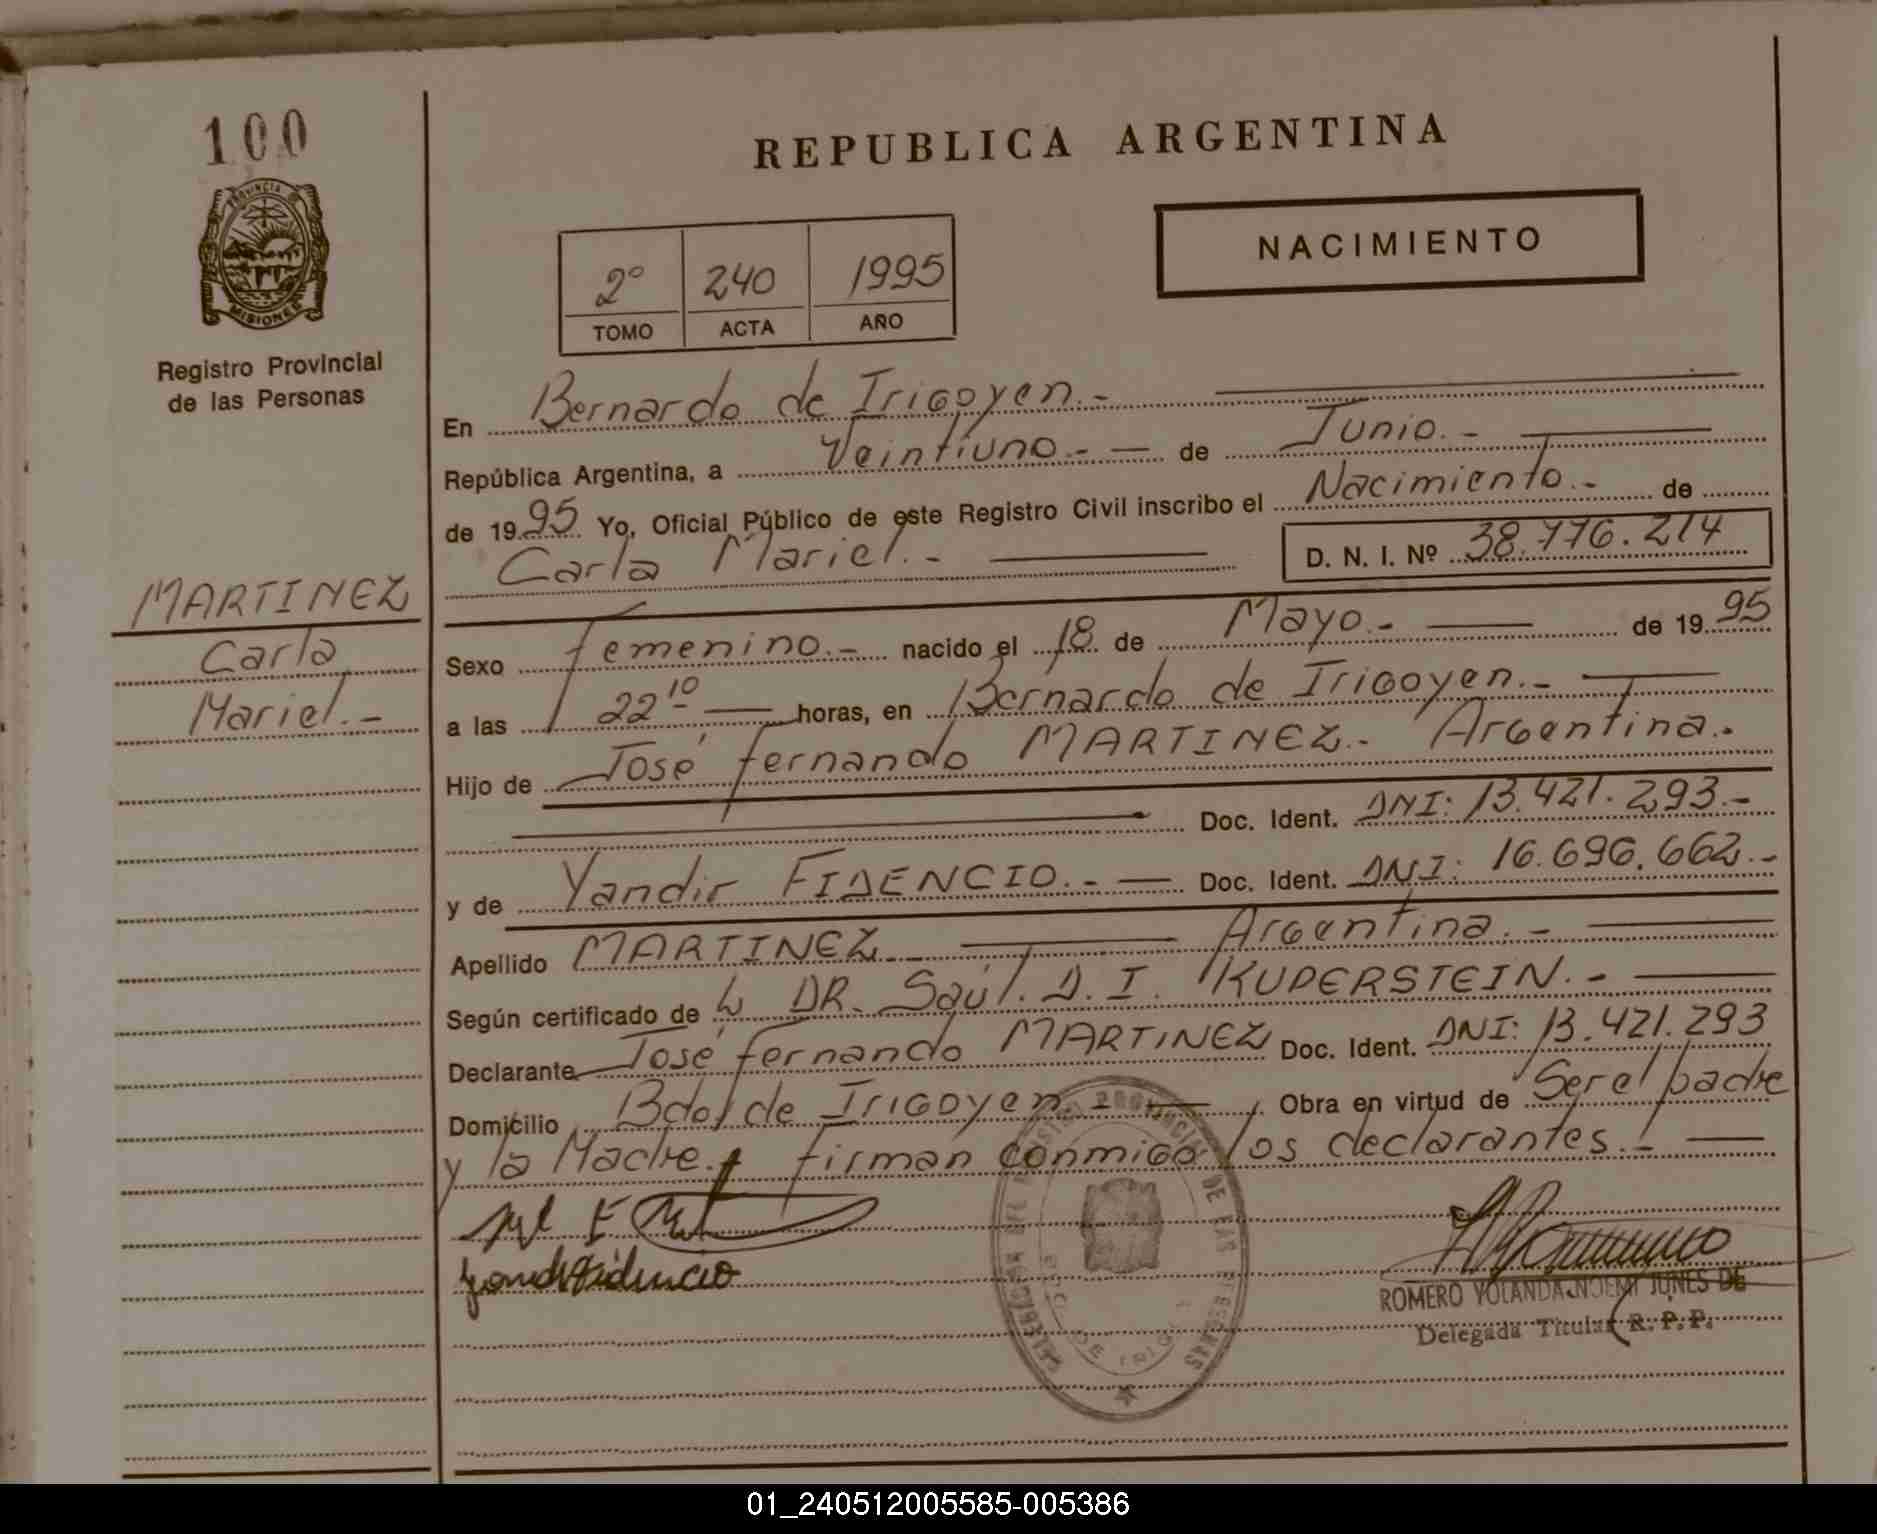 100
PROVINCIA
MISIONES
Registro Provincial
de las Personas
MARTINEZ
Carla
Mariel.-
REPUBLICA ARGENTINA
NACIMIENTO
2º 240 1995
TOMO ACTA AÑO
En Bernardo de Irigoyen.-
República Argentina, a Veintiuno.- de Junio.-
de 1995 Yo, Oficial Público de este Registro Civil inscribo el Nacimiento.- de
Carla Mariel.- D. N. I. Nº 38.776.214
Sexo femenino.- nacido el 18 de Mayo.- de 1995
a las 22 10 horas, en Bernardo de Irigoyen.-
Hijo de José fernando MARTINEZ.- Argentina.-
Doc. Ident. DNI: 13.421.293.-
y de Yandir FIDENCIO.- Doc. Ident. DNI: 16.696.662.-
Apellido MARTINEZ.- Argentina.-
Según certificado de DR. Saúl. D. I. KUPERSTEIN.-
Declarante José fernando MARTINEZ Doc. Ident. DNI: 13.421.293
Domicilio Bdo. de Irigoyen.- Obra en virtud de Ser el padre
y la Madre. firman conmigo los declarantes.-
ROMERO YOLANDA NOEMI JUNES DE
Delegada Titular R. P. P.
01_240512005585-005386